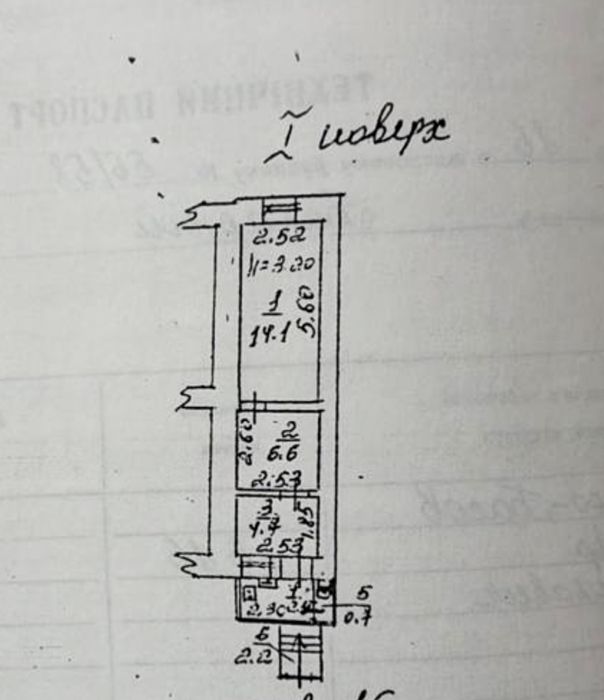 I поверх
2.52
h=3.20
1
14.1
5.60
2.60
2
6.6
2.53
3
4.7
1.85
2.53
2.30
5
0.7
6
2.2